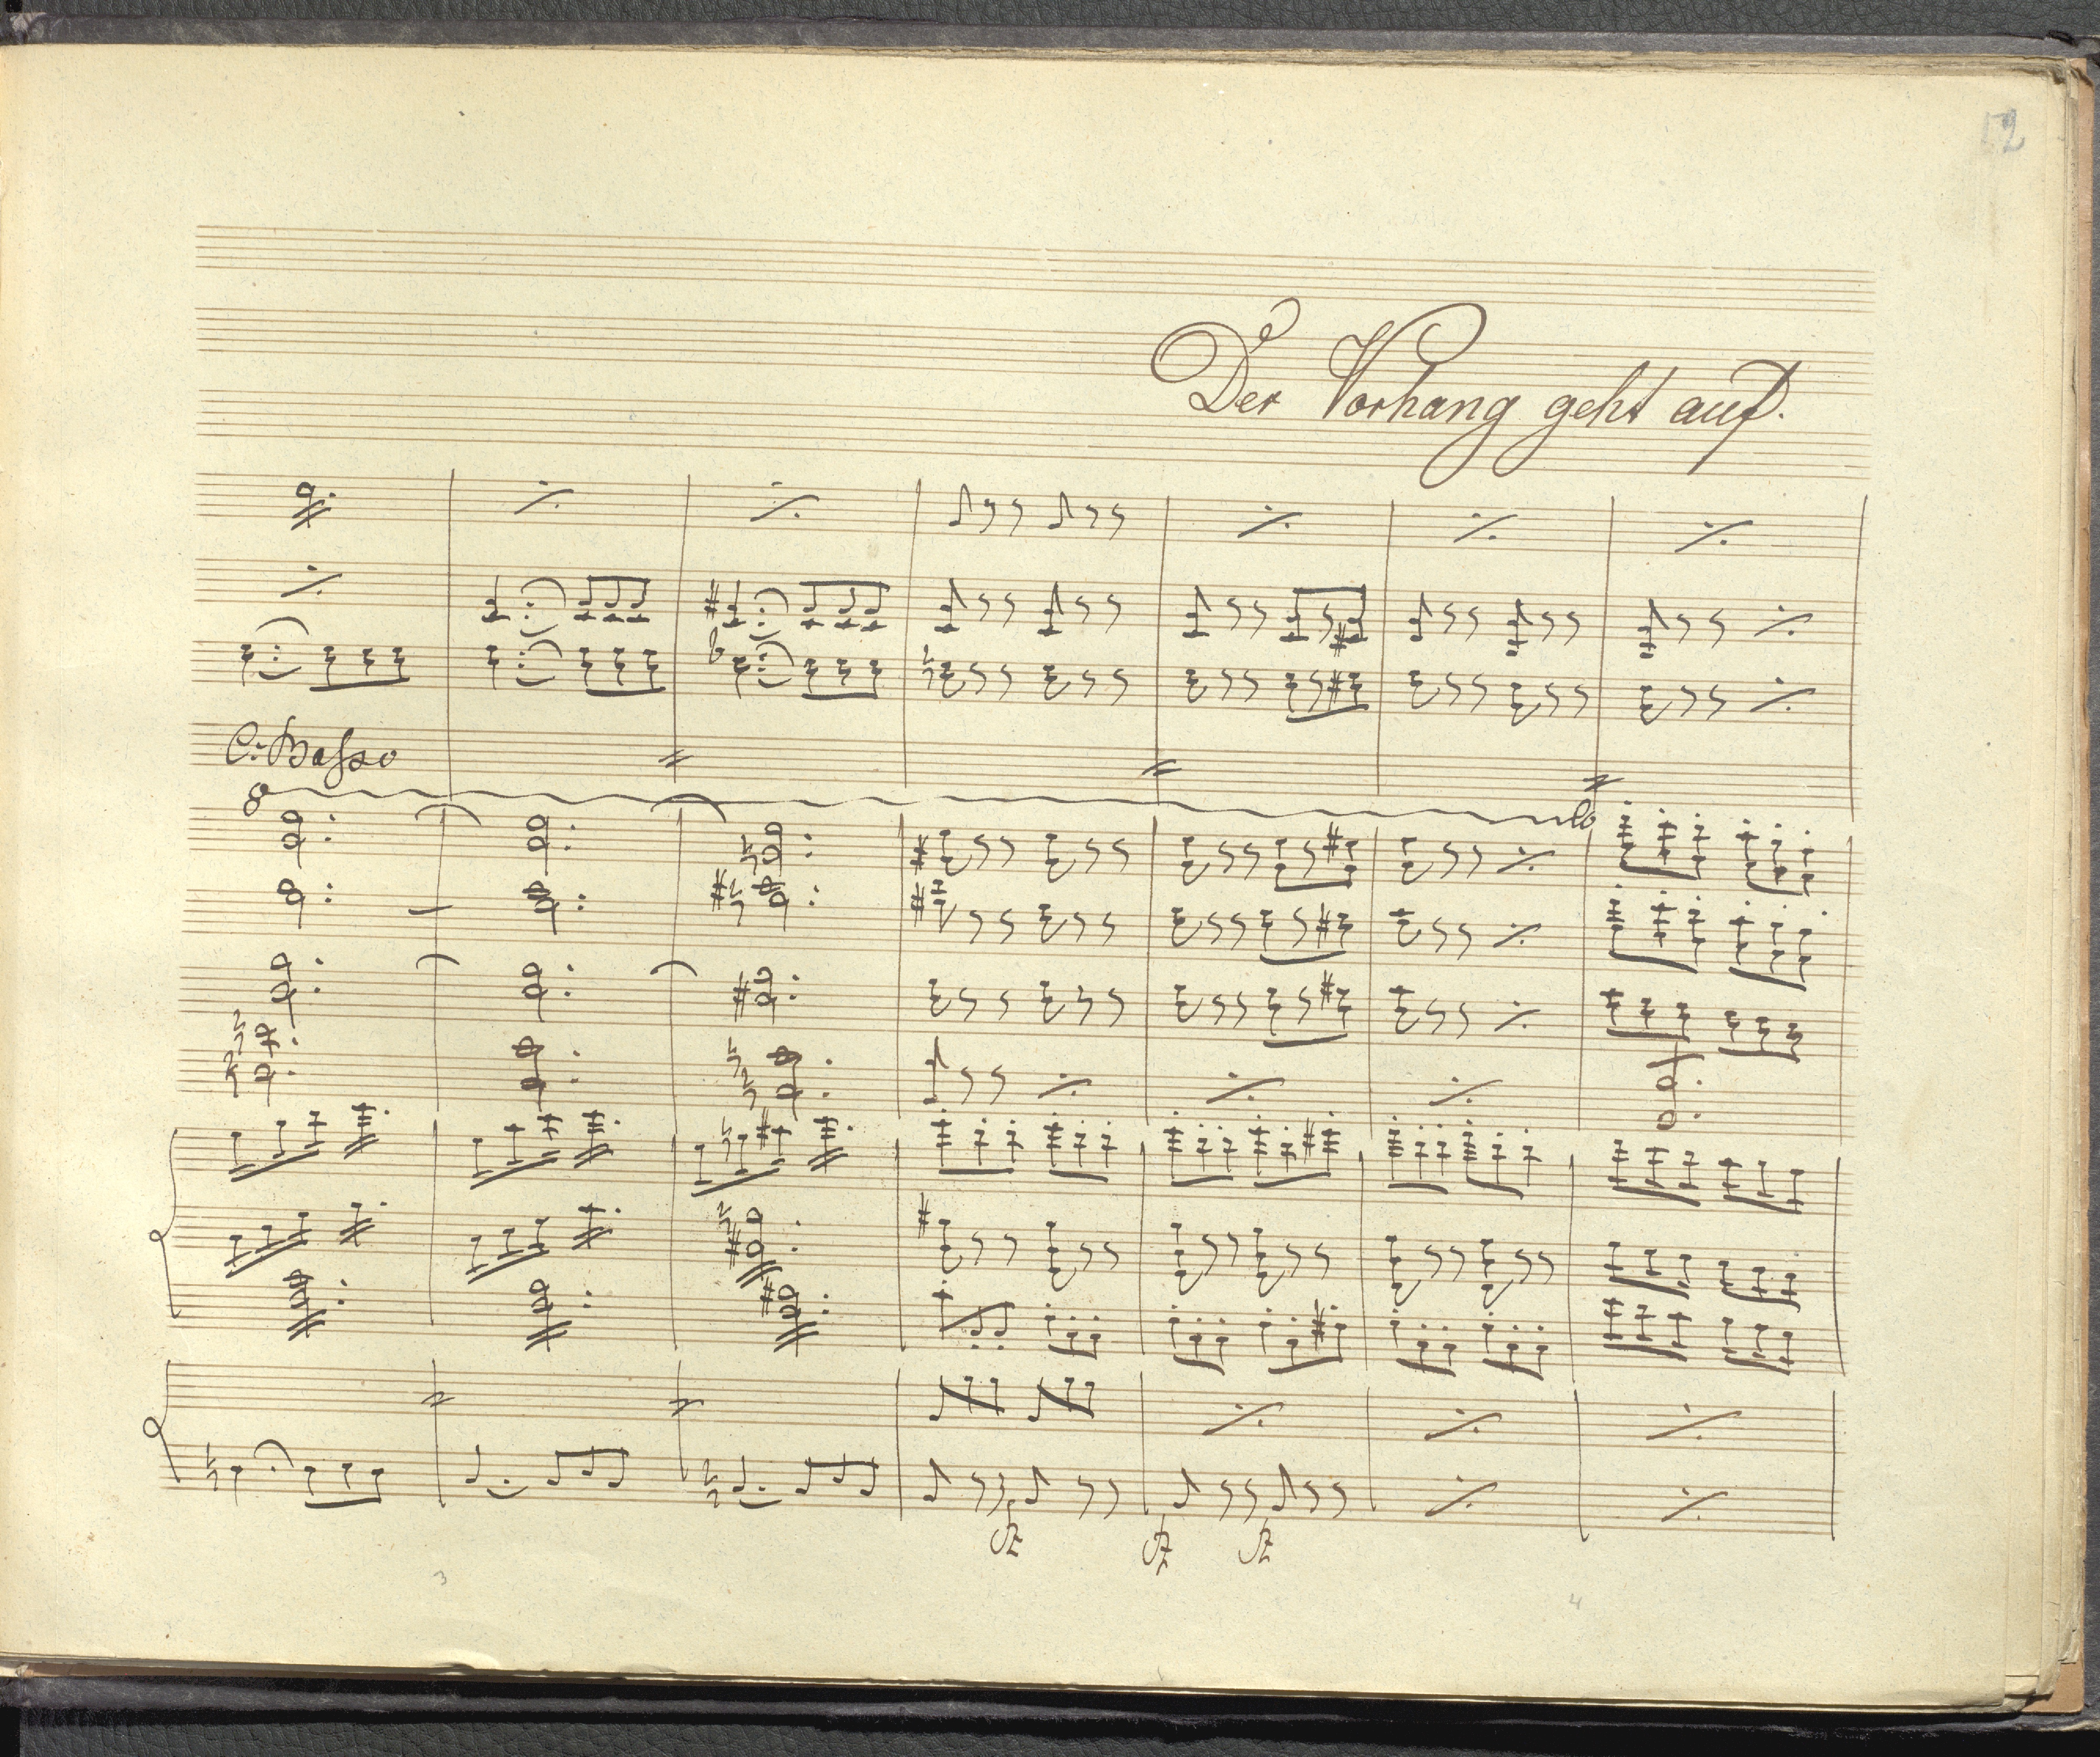 12
Der Vorhang geht auf.
C: Basso
8
lo
fz fz fz
3 4